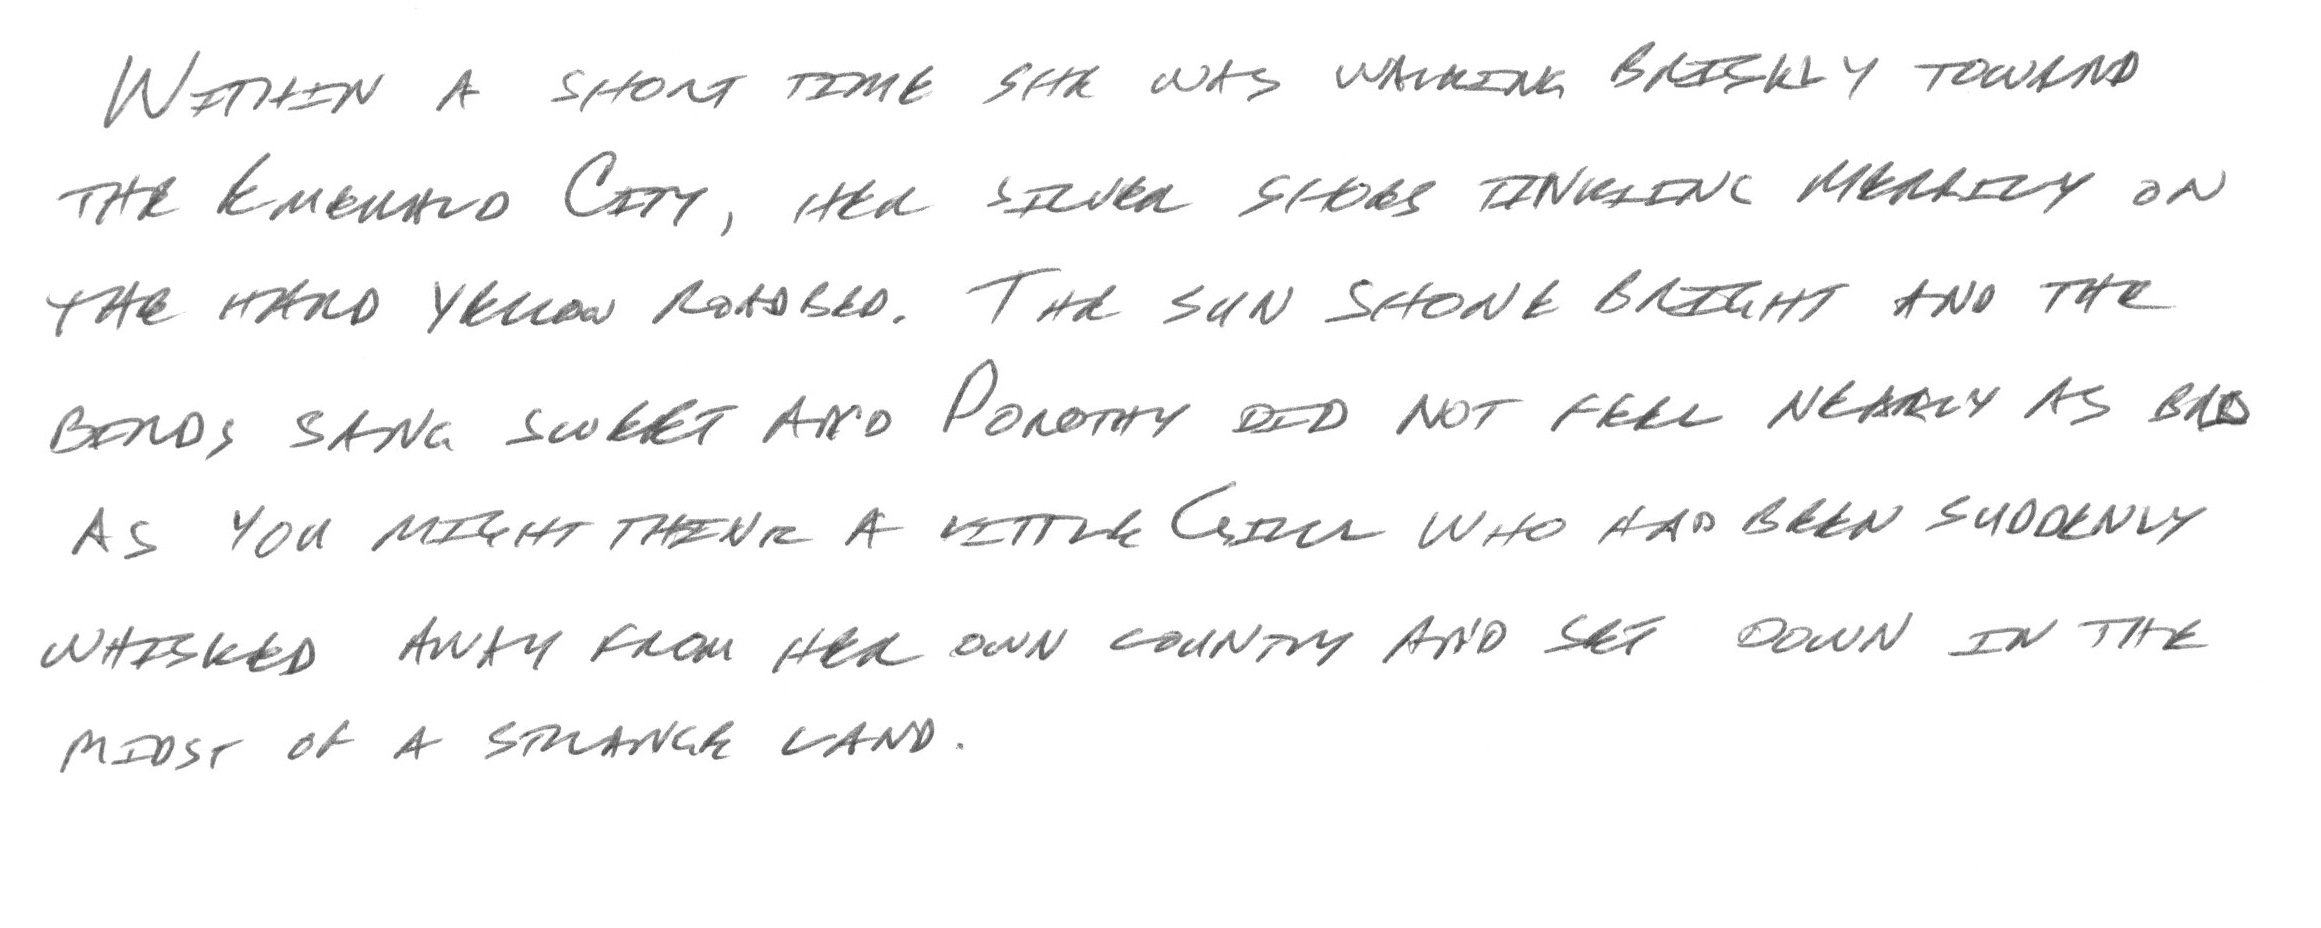 WITHIN A SHORT TIME SHE WAS WALKING BRISKLY TOWARD
THE EMERALD CITY, HER SILVER SHOES TINKLING MERRILY ON
THE HARD YELLOW ROADBED. THE SUN SHONE BRIGHT AND THE
BIRDS SANG SWEET AND DOROTHY DID NOT FEEL NEARLY AS BAD
AS YOU MIGHT THINK A LITTLE GIRL WHO HAD BEEN SUDDENLY
WHISKED AWAY FROM HER OWN COUNTRY AND SET DOWN IN THE
MIDST OF A STRANGE LAND.